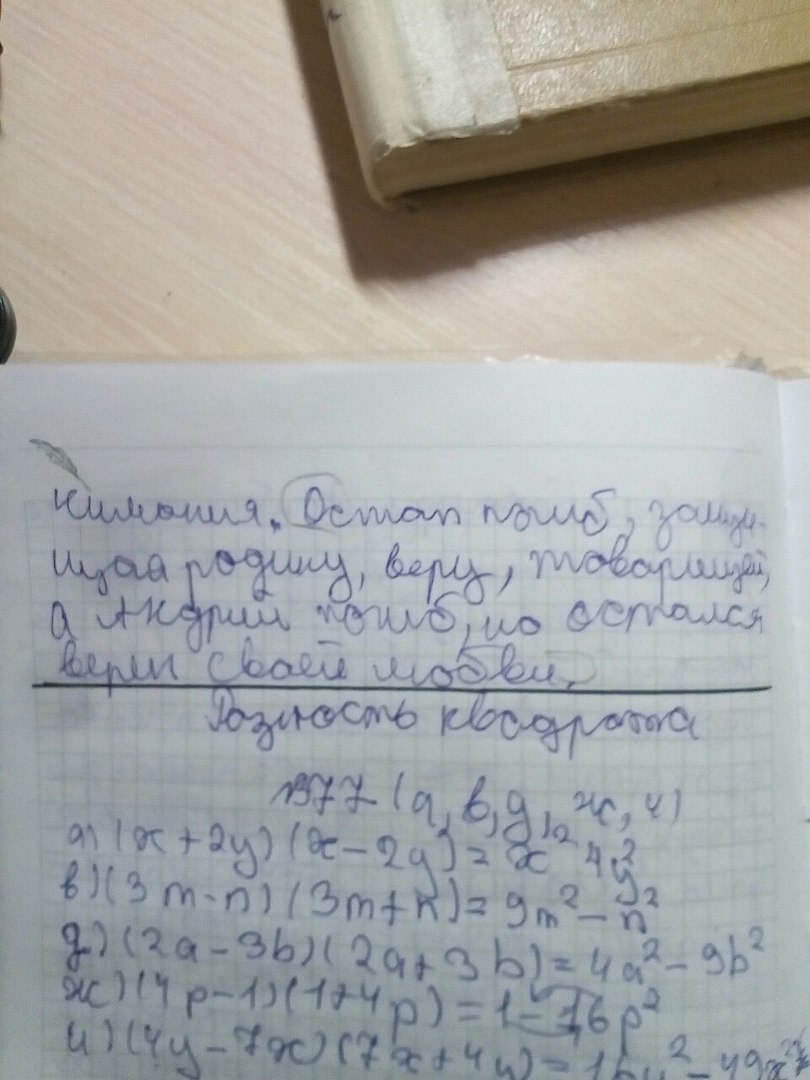 нимания. Остап погиб, защи-
щая родину, веру, товарищей,
а Андрий погиб, но остался
верен своей любви.
Разность квадрата
377 (а, в, д, ж, и)
а) (x + 2y) (x - 2y) = x² 4y²
в) (3m - n) (3m + n) = 9m² - n²
д) (2a - 3b) (2a + 3b) = 4a² - 9b²
ж) (4p - 1) (1 + 4p) = 1 - 16p²
и) (4y - 7x) (7x + 4y) = 16y² - 49x²